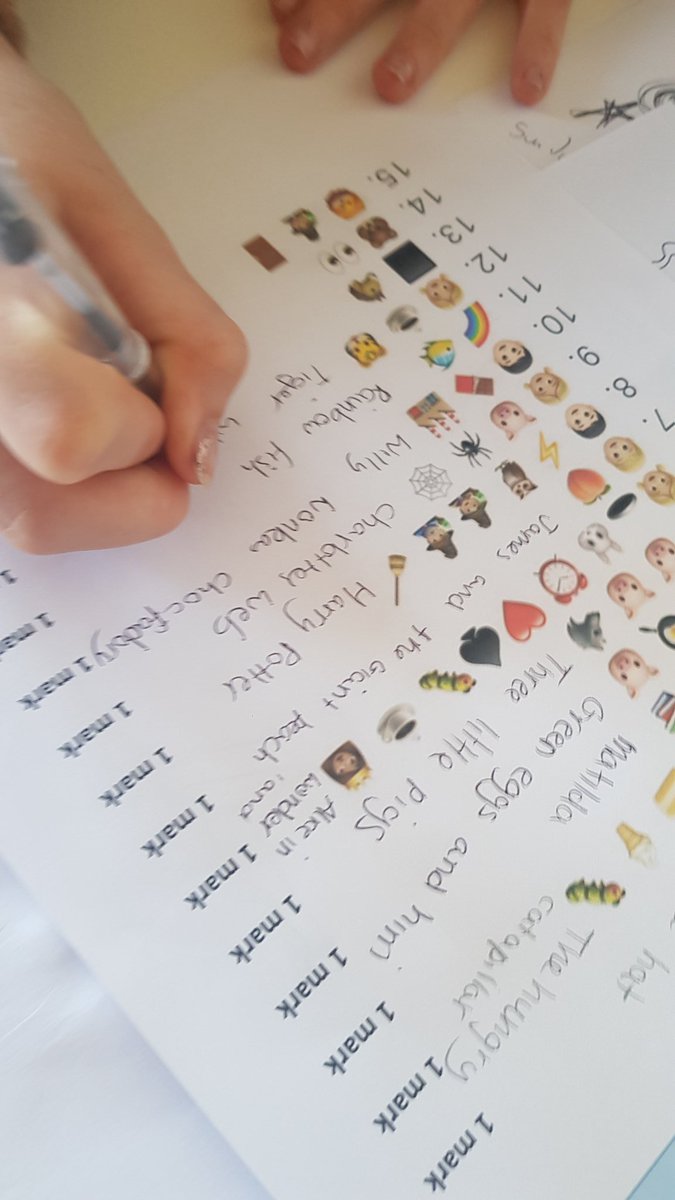 hat 1 mark
The hungry
catapillar 1 mark
matilda 1 mark
Green eggs and him 1 mark
Three little pigs 1 mark
7. Alice in
wonder
land 1 mark
8. James and the Giant peach 1 mark
9. Harry Potter 1 mark
10. web 1 mark
11. Willy Wonkas chocfactory 1 mark
12. Rainbow fish 1 mark
13. Tiger
14.
15.